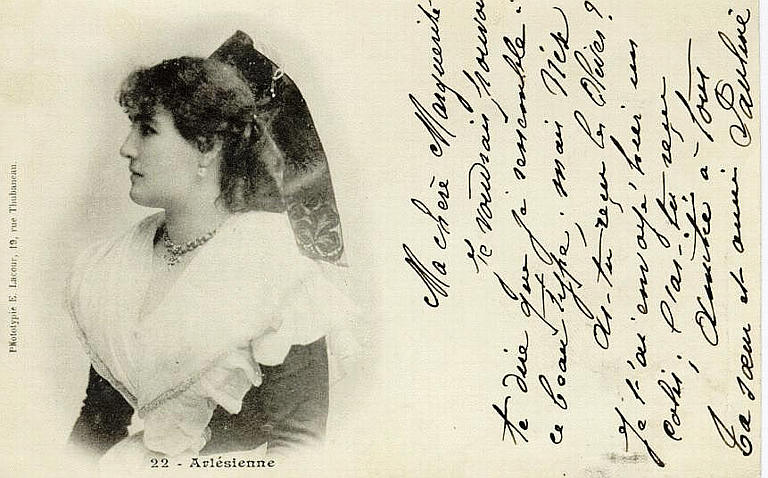 Phototypie E. Lacour, 19, rue Thubaneau.
22 - Arlésienne
Ma chère Marguerite
je voudrais pouvoir
te dire que je ressemble à
ce beau type, mais
As-tu reçu les olives?
Je t'ai envoyé hier un
colis; l'as-tu reçu
Amitié à tous
Ta sœur et amie Pauline